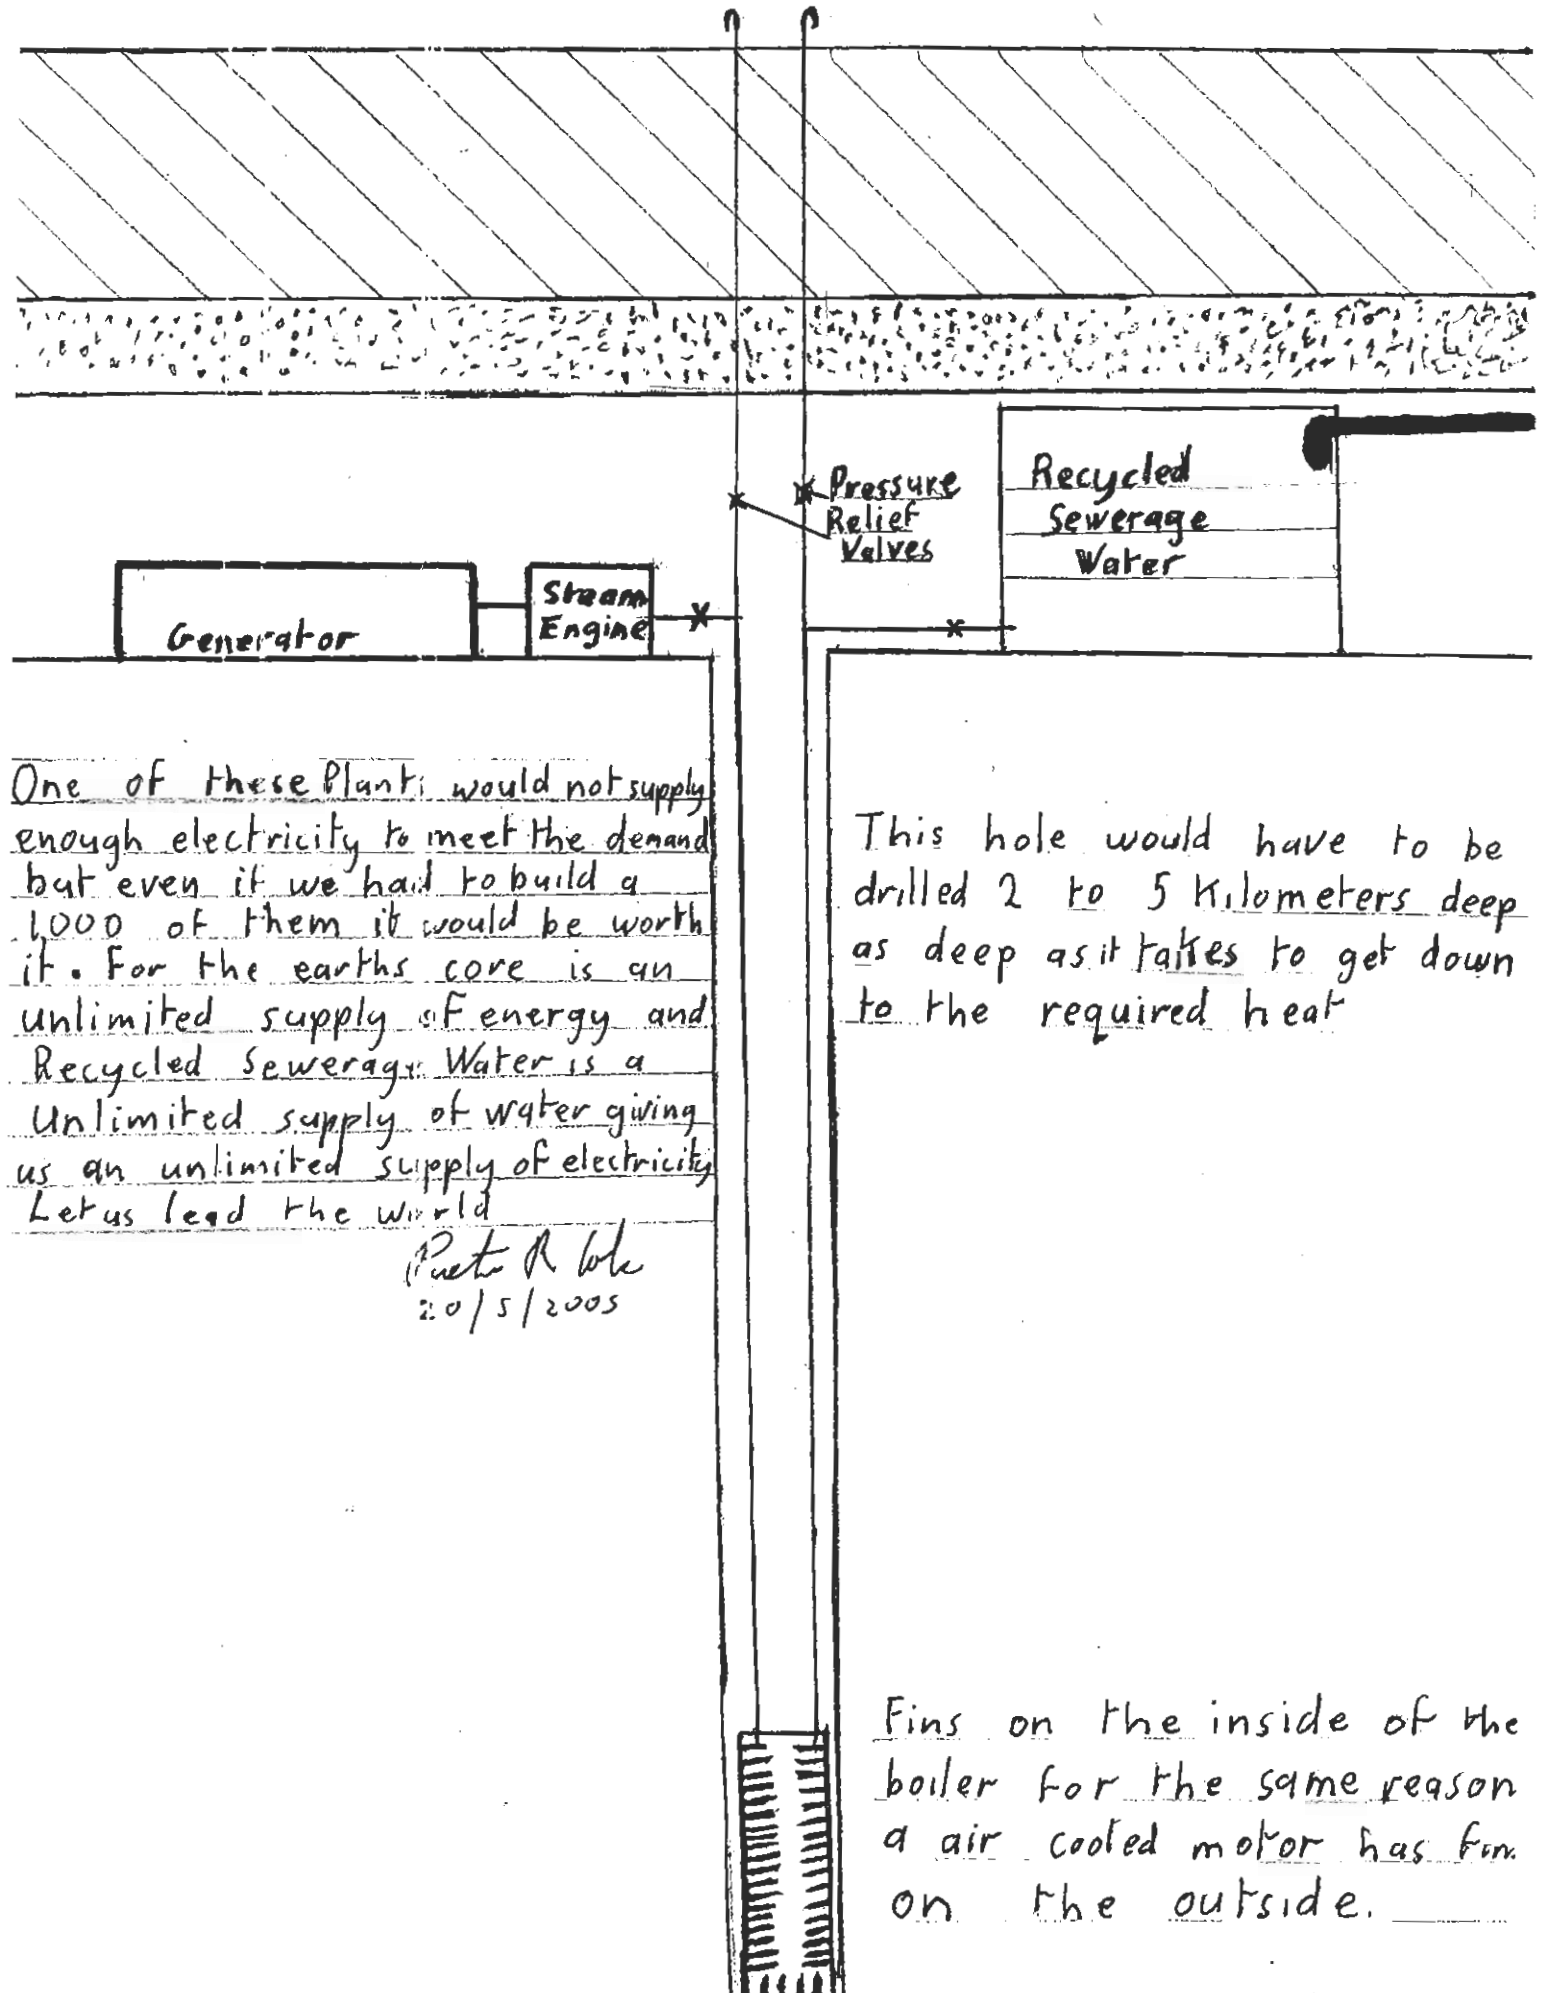 Pressure
Relief
Valves
Recycled
Sewerage
Water
Generator
Steam
Engine
One of these Plants would not supply
enough electricity to meet the demand
but even if we had to build a
1,000 of them it would be worth
it. For the earths core is an
unlimited supply of energy and
Recycled Sewerage Water is a
Unlimited supply of water giving
us an unlimited supply of electricity
Let us lead the world
R
20/5/2005
This hole would have to be
drilled 2 to 5 Kilometers deep
as deep as it takes to get down
to the required heat
Fins on the inside of the
boiler for the same reason
a air cooled motor has fin
on the outside.